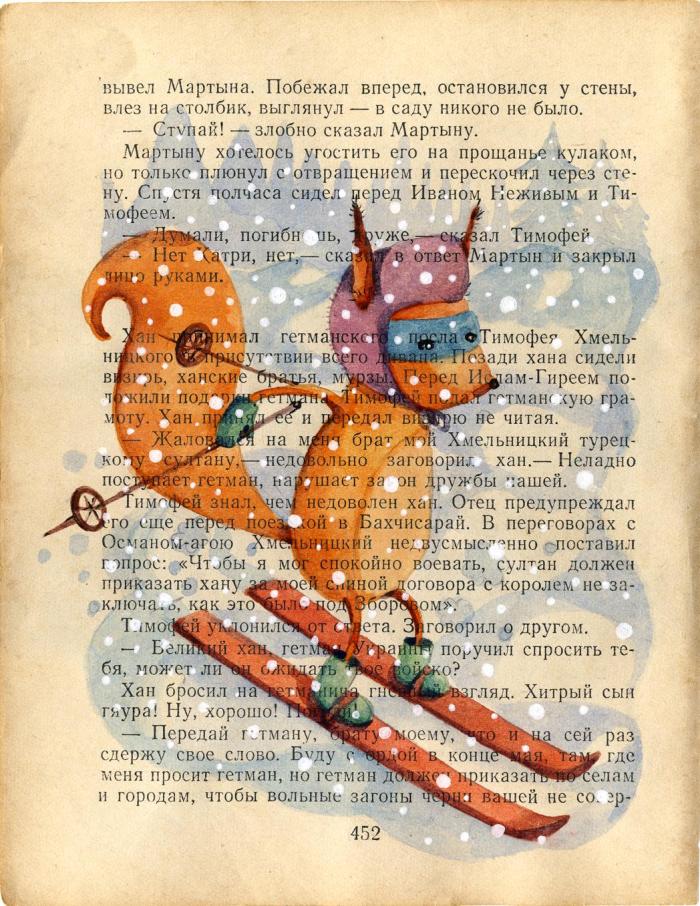 вывел Мартына. Побежал вперед, остановился у стены,
влез на столбик, выглянул — в саду никого не было.
— Ступай! — злобно сказал Мартыну.
Мартыну хотелось угостить его на прощанье кулаком,
но только плюнул с отвращением и перескочил через сте-
ну. Спустя полчаса сидел перед Иваном Неживым и Ти-
мофеем.
— Думали, погибнешь, друже,— сказал Тимофей
— Нет Катри, нет,— сказал в ответ Мартын и закрыл
лицо руками.
Хан принимал гетманского посла Тимофея Хмель-
ницкого в присутствии всего дивана. Позади хана сидели
визирь, ханские братья, мурзы. Перед Ислам-Гиреем по-
ложили подарки гетмана. Тимофей подал гетманскую гра-
моту. Хан принял ее и передал визирю не читая.
— Жаловался на меня брат мой Хмельницкий турец-
кому султану,— недовольно заговорил хан.— Неладно
поступает гетман, нарушает закон дружбы нашей.
Тимофей знал, чем недоволен хан. Отец предупреждал
его еще перед поездкой в Бахчисарай. В переговорах с
Османом-агою Хмельницкий недвусмысленно поставил
вопрос: «Чтобы я мог спокойно воевать, султан должен
приказать хану за моей спиной договора с королем не за-
ключать, как это было под Зборовом».
Тимофей уклонился от ответа. Заговорил о другом.
— Великий хан, гетман Украины поручил спросить те-
бя, может ли он ожидать твое войско?
Хан бросил на гетманича гневный взгляд. Хитрый сын
гяура! Ну, хорошо!
— Передай гетману, брату моему, что и на сей раз
сдержу свое слово. Буду с ордой в конце мая, там, где
меня просит гетман, но гетман должен приказать по селам
и городам, чтобы вольные загоны черни вашей не совер-
452